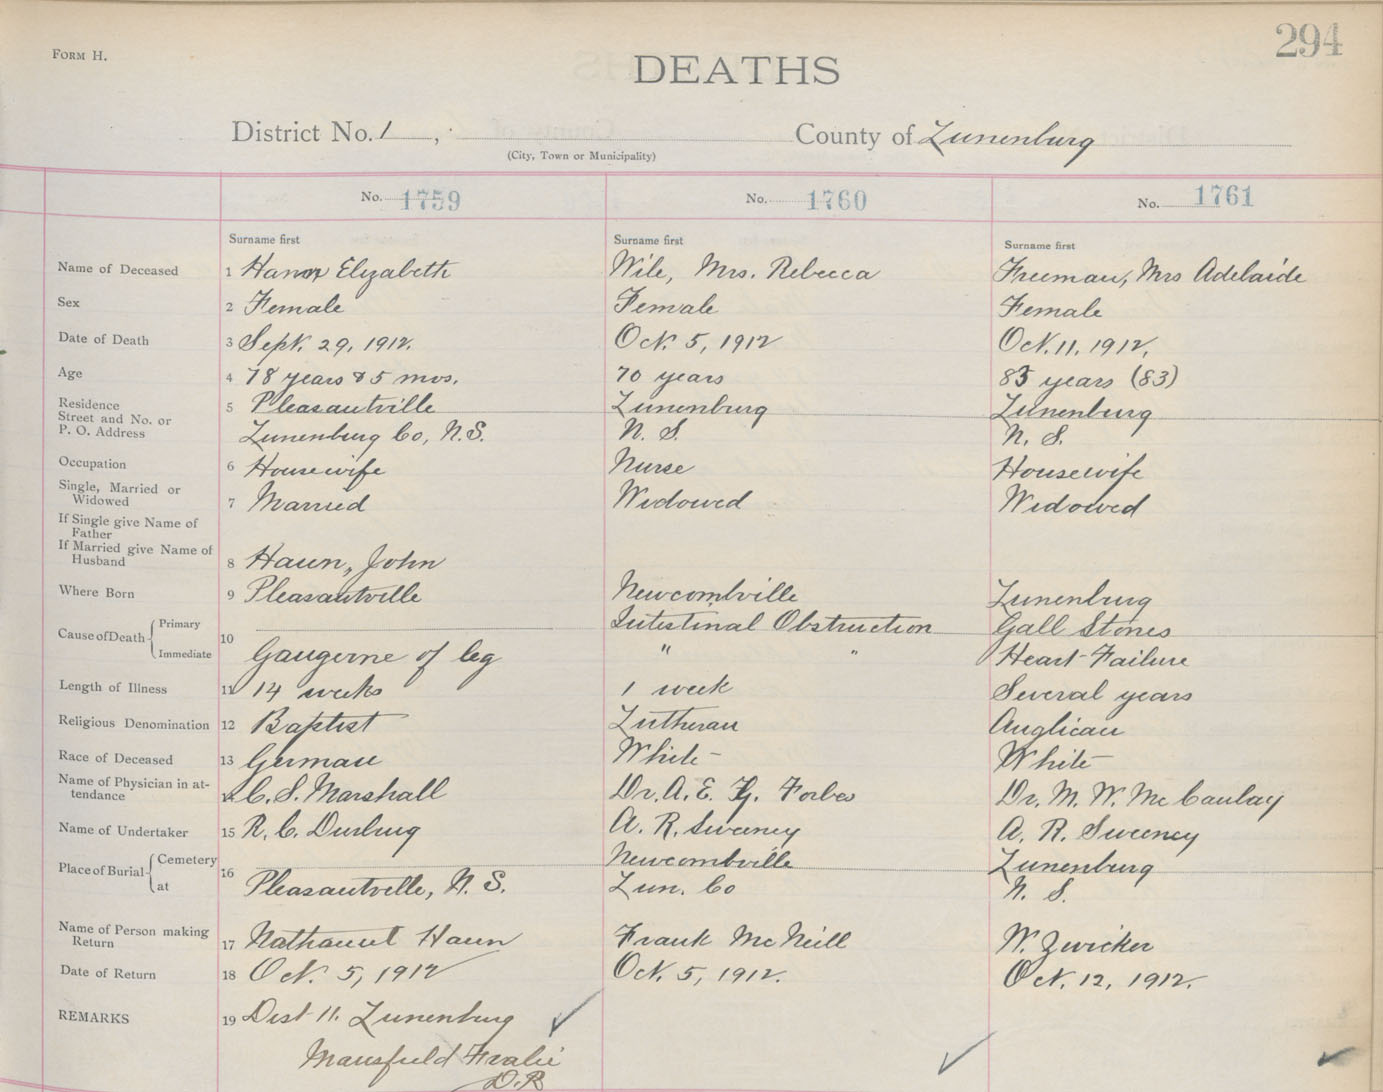 294
FORM H.
DEATHS
District No. 1, County of Lunenburg
(City, Town or Municipality)
No. 1759 No. 1760 No. 1761
Surname first Surname first Surname first
Name of Deceased 1 Elizabeth Wile, Mrs. Rebecca Freeman, Mrs Adelaide
Sex 2 Female Female Female
Date of Death 3 Sept. 29, 1912. Oct. 5, 1912 Oct. 11, 1912,
Age 4 78 years & 5 mos. 70 years 83 years (83)
Residence Street and No. or P. O. Address 5 Pleasantville Lunenburg Lunenburg
Lunenburg Co, N.S. N. S. N. S.
Occupation 6 Housewife Nurse Housewife
Single, Married or Widowed 7 Married Widowed Widowed
If Single give Name of Father
If Married give Name of Husband 8 Hawn, John
Where Born 9 Pleasantville Newcombville Lunenburg
Cause of Death Primary 10 Intestinal Obstruction Gall Stones
Immediate Gangerne of leg " " Heart Failure
Length of Illness 11 14 weeks 1 week Several years
Religious Denomination 12 Baptist Lutheran Anglican
Race of Deceased 13 German White White
Name of Physician in attendance 14 C. S. Marshall Dr. A. E. G. Forbes Dr. M. W. McCaulay
Name of Undertaker 15 R. C. Durling A. R. Sweeney A. R. Sweeney
Place of Burial Cemetery 16 Newcombville Lunenburg
at Pleasantville, N. S. Lun. Co N. S.
Name of Person making Return 17 Nathaniel Hawn Frank McNeill W. Zwicker
Date of Return 18 Oct. 5, 1912 Oct. 5, 1912. Oct. 12, 1912.
REMARKS 19 Dist 11. Lunenburg
Mansfield
D.R